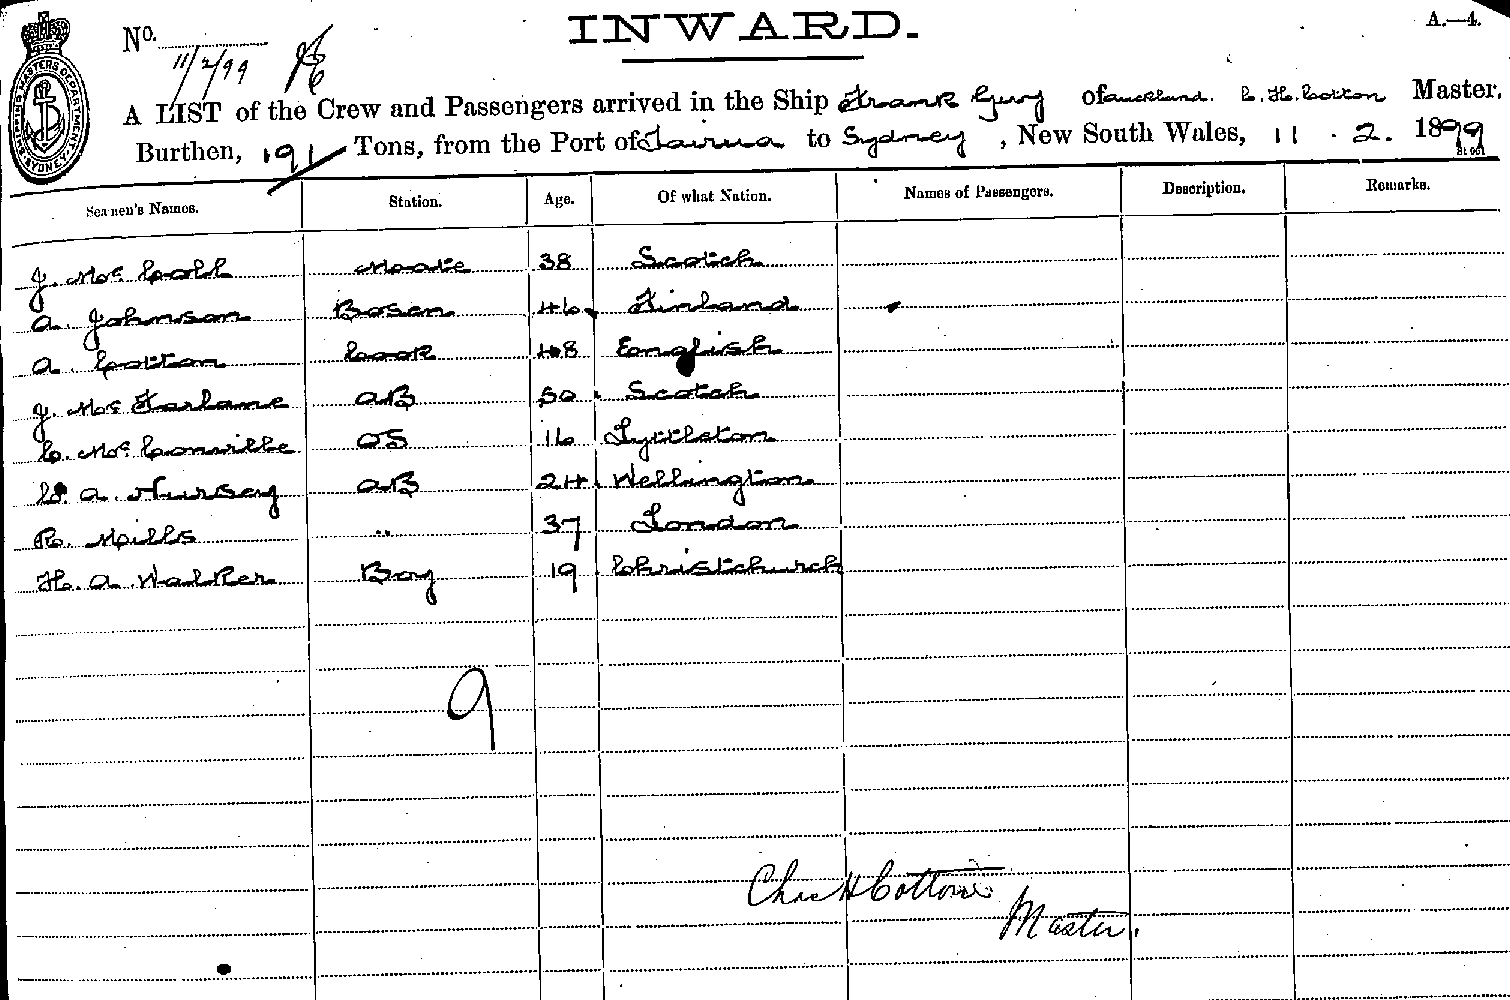 INWARD.
A.—4.
No.
11/2/99
SHIPPING MASTERS DEPARTMENT SYDNEY
A LIST of the Crew and Passengers arrived in the Ship Frank Guy Of Auckland. C. H. Cotton Master,
Burthen, 191 Tons, from the Port of Tairua to Sydney, New South Wales, 11 . 2. 1899
Seamen's Names. Station. Age. Of what Nation. Names of Passengers. Description. Remarks.
J. McColl Mate 38 Scotch
A. Johnson Bosen 46 Finland
A. Cotton Cook 48 English
J. McFarlane AB 50 Scotch
C. McConville OS 16 Lyttleton
W. A. Nursey AB 24 Wellington
R. Mills " 37 London
H. A. Walker Boy 19 Christchurch
9
Chas H Cotton
Master.